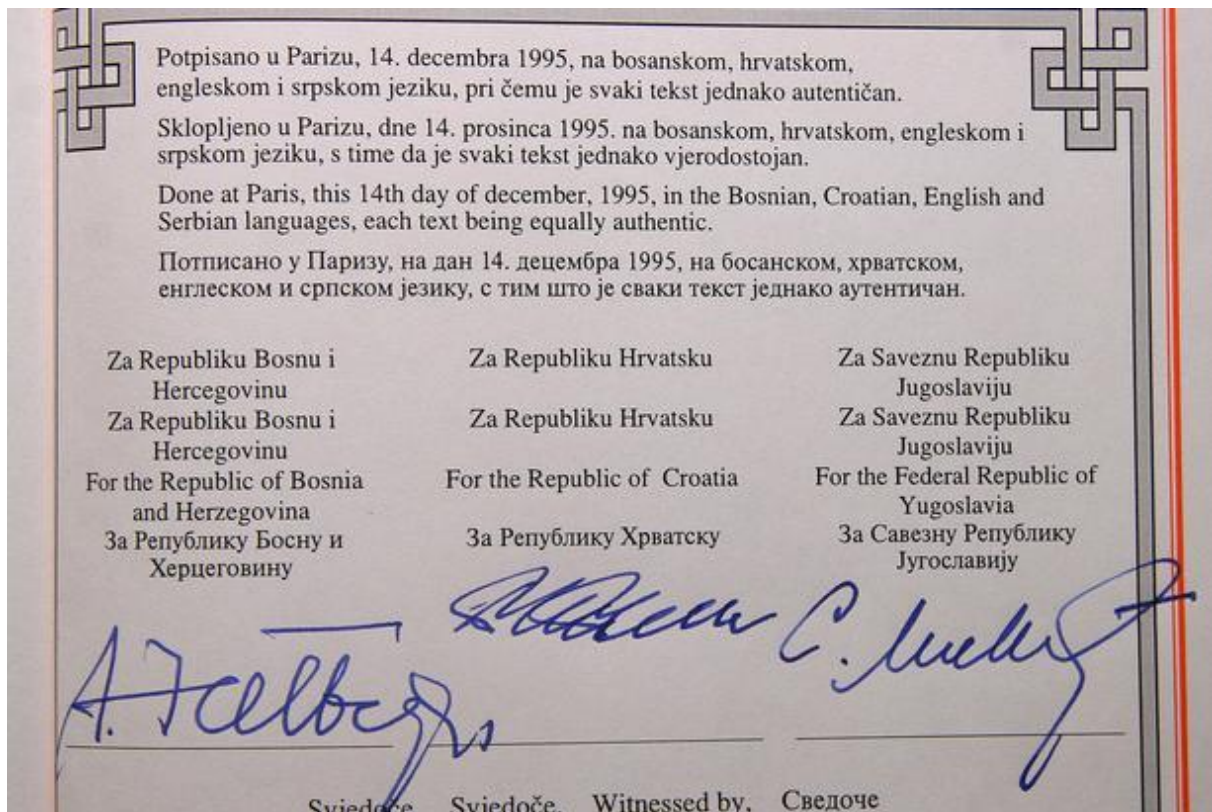 Potpisano u Parizu, 14. decembra 1995, na bosanskom, hrvatskom,
engleskom i srpskom jeziku, pri čemu je svaki tekst jednako autentičan.
Sklopljeno u Parizu, dne 14. prosinca 1995. na bosanskom, hrvatskom, engleskom i
srpskom jeziku, s time da je svaki tekst jednako vjerodostojan.
Done at Paris, this 14th day of december, 1995, in the Bosnian, Croatian, English and
Serbian languages, each text being equally authentic.
Потписано у Паризу, на дан 14. децембра 1995, на босанском, хрватском,
енглеском и српском језику, с тим што је сваки текст једнако аутентичан.
Za Republiku Bosnu i
Hercegovinu
Za Republiku Bosnu i
Hercegovinu
For the Republic of Bosnia
and Herzegovina
За Републику Босну и
Херцеговину
Za Republiku Hrvatsku
Za Republiku Hrvatsku
For the Republic of Croatia
За Републику Хрватску
Za Saveznu Republiku
Jugoslaviju
Za Saveznu Republiku
Jugoslaviju
For the Federal Republic of
Yugoslavia
За Савезну Републику
Југославију
Svjedoče, Svjedoče, Witnessed by, Сведоче